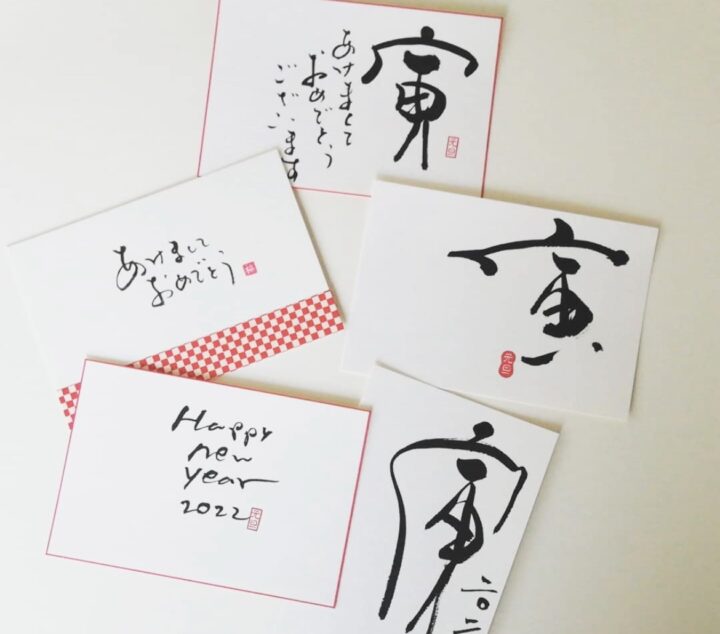 寅
あけまして
おめでとう
ございます
元旦
あけまして
おめでとう
寅
元旦
Happy
new
year
2022
元旦
寅